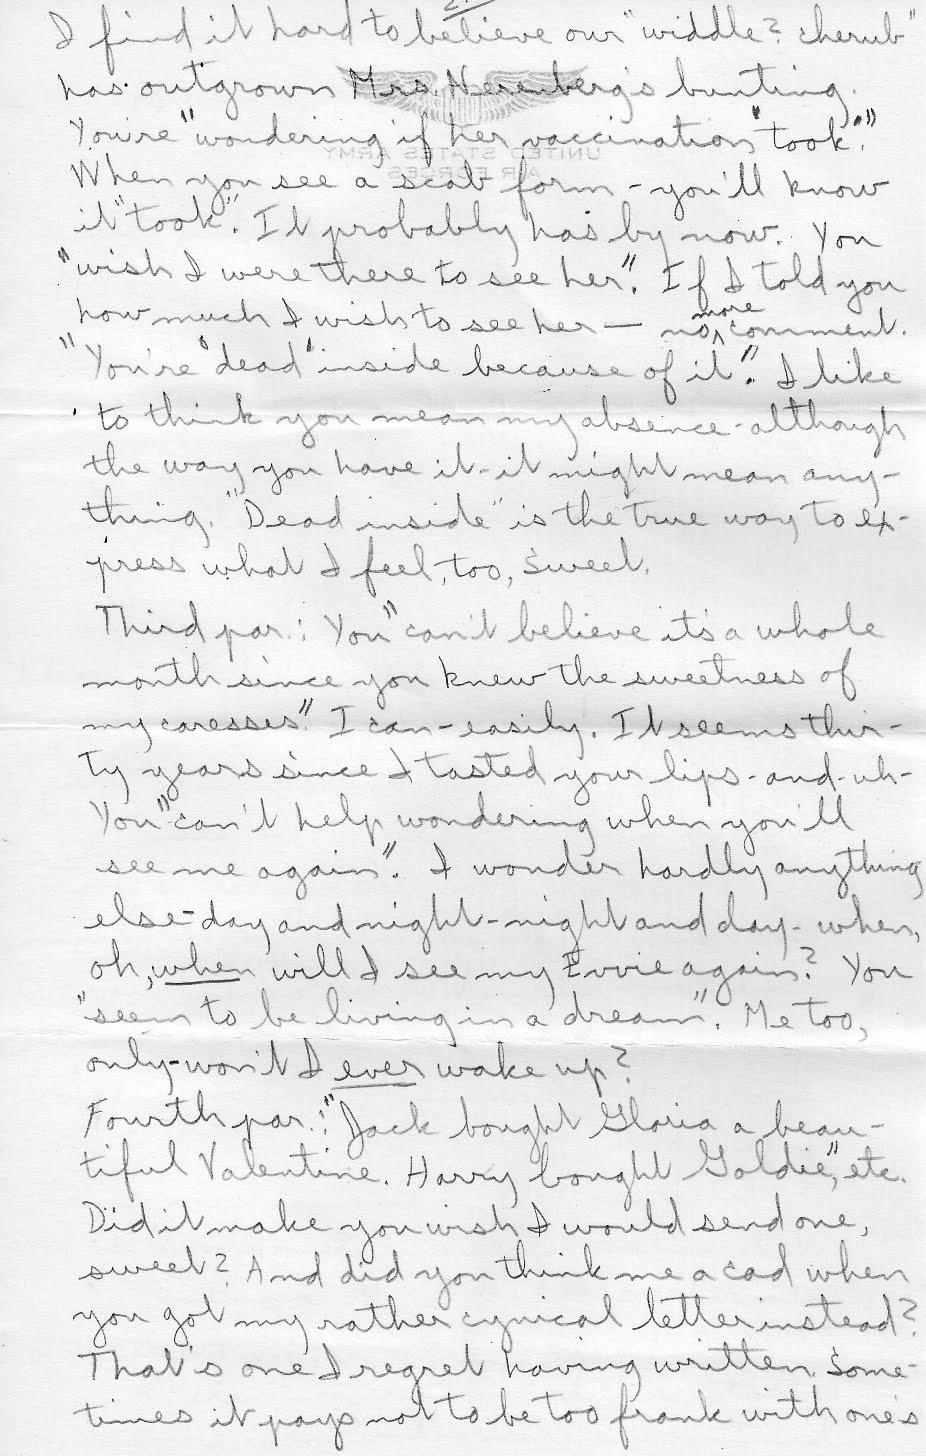 2.
I find it hard to believe our "widdle? cherub"
has outgrown Mrs. Nerenberg's bunting.
You're "wondering if her vaccination "took"."
When you see a scab form - you'll know
it "took". It probably has by now. You
"wish I were there to see her". If I told you
how much I wish to see her — no more comment.
"You're "dead" inside because of it". I like
to think you mean my absence - although
the way you have it - it might mean any-
thing. "Dead inside" is the true way to ex-
press what I feel, too, Sweet.
Third par.: You "can't believe it's a whole
month since you knew the sweetness of
my caresses". I can - easily. It seems thir-
ty years since I tasted your lips - and - uh -
You "can't help wondering when you'll
see me again". I wonder hardly anything
else - day and night - night and day - when,
oh, when will I see my Evvie again? You
"seem to be living in a dream". Me too,
only - won't I ever wake up?
Fourth par.: "Jack bought Gloria a beau-
tiful Valentine. Harry bought Goldie", etc.
Did it make you wish I would send one,
sweet? And did you think me a cad when
you got my rather cynical letter instead?
That's one I regret having written. Some-
times it pays not to be too frank with one's
UNITED STATES ARMY
AIR FORCES